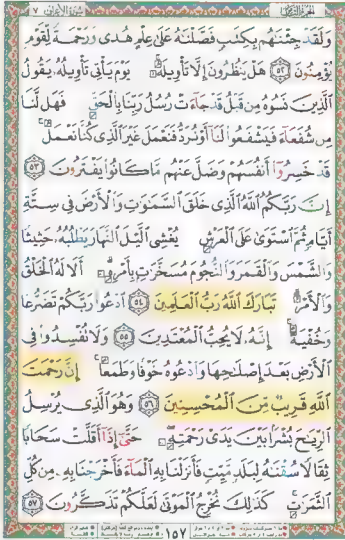 الجزء الثامن ٧ سورة الأعراف
وَلَقَدْ جِئْنَٰهُم بِكِتَٰبٍ فَصَّلْنَٰهُ عَلَىٰ عِلْمٍ هُدًى وَرَحْمَةً لِّقَوْمٍ
يُؤْمِنُونَ ٥٢ هَلْ يَنظُرُونَ إِلَّا تَأْوِيلَهُۥ ۚ يَوْمَ يَأْتِى تَأْوِيلُهُۥ يَقُولُ
ٱلَّذِينَ نَسُوهُ مِن قَبْلُ قَدْ جَآءَتْ رُسُلُ رَبِّنَا بِٱلْحَقِّ فَهَل لَّنَا
مِن شُفَعَآءَ فَيَشْفَعُوا۟ لَنَآ أَوْ نُرَدُّ فَنَعْمَلَ غَيْرَ ٱلَّذِى كُنَّا نَعْمَلُ ۚ
قَدْ خَسِرُوٓا۟ أَنفُسَهُمْ وَضَلَّ عَنْهُم مَّا كَانُوا۟ يَفْتَرُونَ ٥٣
إِنَّ رَبَّكُمُ ٱللَّهُ ٱلَّذِى خَلَقَ ٱلسَّمَٰوَٰتِ وَٱلْأَرْضَ فِى سِتَّةِ
أَيَّامٍ ثُمَّ ٱسْتَوَىٰ عَلَى ٱلْعَرْشِ يُغْشِى ٱلَّيْلَ ٱلنَّهَارَ يَطْلُبُهُۥ حَثِيثًا
وَٱلشَّمْسَ وَٱلْقَمَرَ وَٱلنُّجُومَ مُسَخَّرَٰتٍۭ بِأَمْرِهِۦٓ ۗ أَلَا لَهُ ٱلْخَلْقُ
وَٱلْأَمْرُ ۗ تَبَارَكَ ٱللَّهُ رَبُّ ٱلْعَٰلَمِينَ ٥٤ ٱدْعُوا۟ رَبَّكُمْ تَضَرُّعًا
وَخُفْيَةً ۚ إِنَّهُۥ لَا يُحِبُّ ٱلْمُعْتَدِينَ ٥٥ وَلَا تُفْسِدُوا۟ فِى
ٱلْأَرْضِ بَعْدَ إِصْلَٰحِهَا وَٱدْعُوهُ خَوْفًا وَطَمَعًا ۚ إِنَّ رَحْمَتَ
ٱللَّهِ قَرِيبٌ مِّنَ ٱلْمُحْسِنِينَ ٥٦ وَهُوَ ٱلَّذِى يُرْسِلُ
ٱلرِّيَٰحَ بُشْرًۢا بَيْنَ يَدَىْ رَحْمَتِهِۦ ۖ حَتَّىٰٓ إِذَآ أَقَلَّتْ سَحَابًا
ثِقَالًا سُقْنَٰهُ لِبَلَدٍ مَّيِّتٍ فَأَنزَلْنَا بِهِ ٱلْمَآءَ فَأَخْرَجْنَا بِهِۦ مِن كُلِّ
ٱلثَّمَرَٰتِ ۚ كَذَٰلِكَ نُخْرِجُ ٱلْمَوْتَىٰ لَعَلَّكُمْ تَذَكَّرُونَ ٥٧
١٥٧